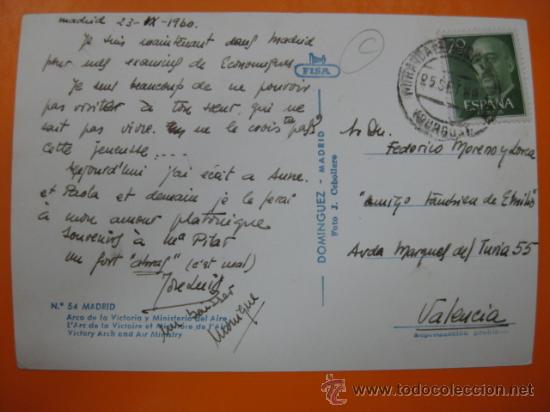 Madrid 23-IX-1960.
Je suis maintenant dans Madrid
pour mes examins de Economiques
Je sent beaucoup de ne pouvoir
pas visiter à ton sœur, qui ne
sait pas vivre. Tu ne le crois pas
cette jeunesse.....
Aujourd'hui j'ai écrit a Anne.
et Paola et demain je le ferai
à mon amour platonique
Souvenirs à Mª Pilar
un fort "abraç" (c'est mal)
José Luis
Monique
Nº 54 MADRID
Arco de la Victoria y Ministerio del Aire
L'Arc de la Victoire et Ministère de l'Air
Victory Arch and Air Ministry
FISA
DOMINGUEZ - MADRID
Foto J. Cebollero
ESPAÑA
Federico Moreno y Lorca
"amigo tambien de Emilio"
Avda Marques del Turia 55
Valencia
todocoleccion.net